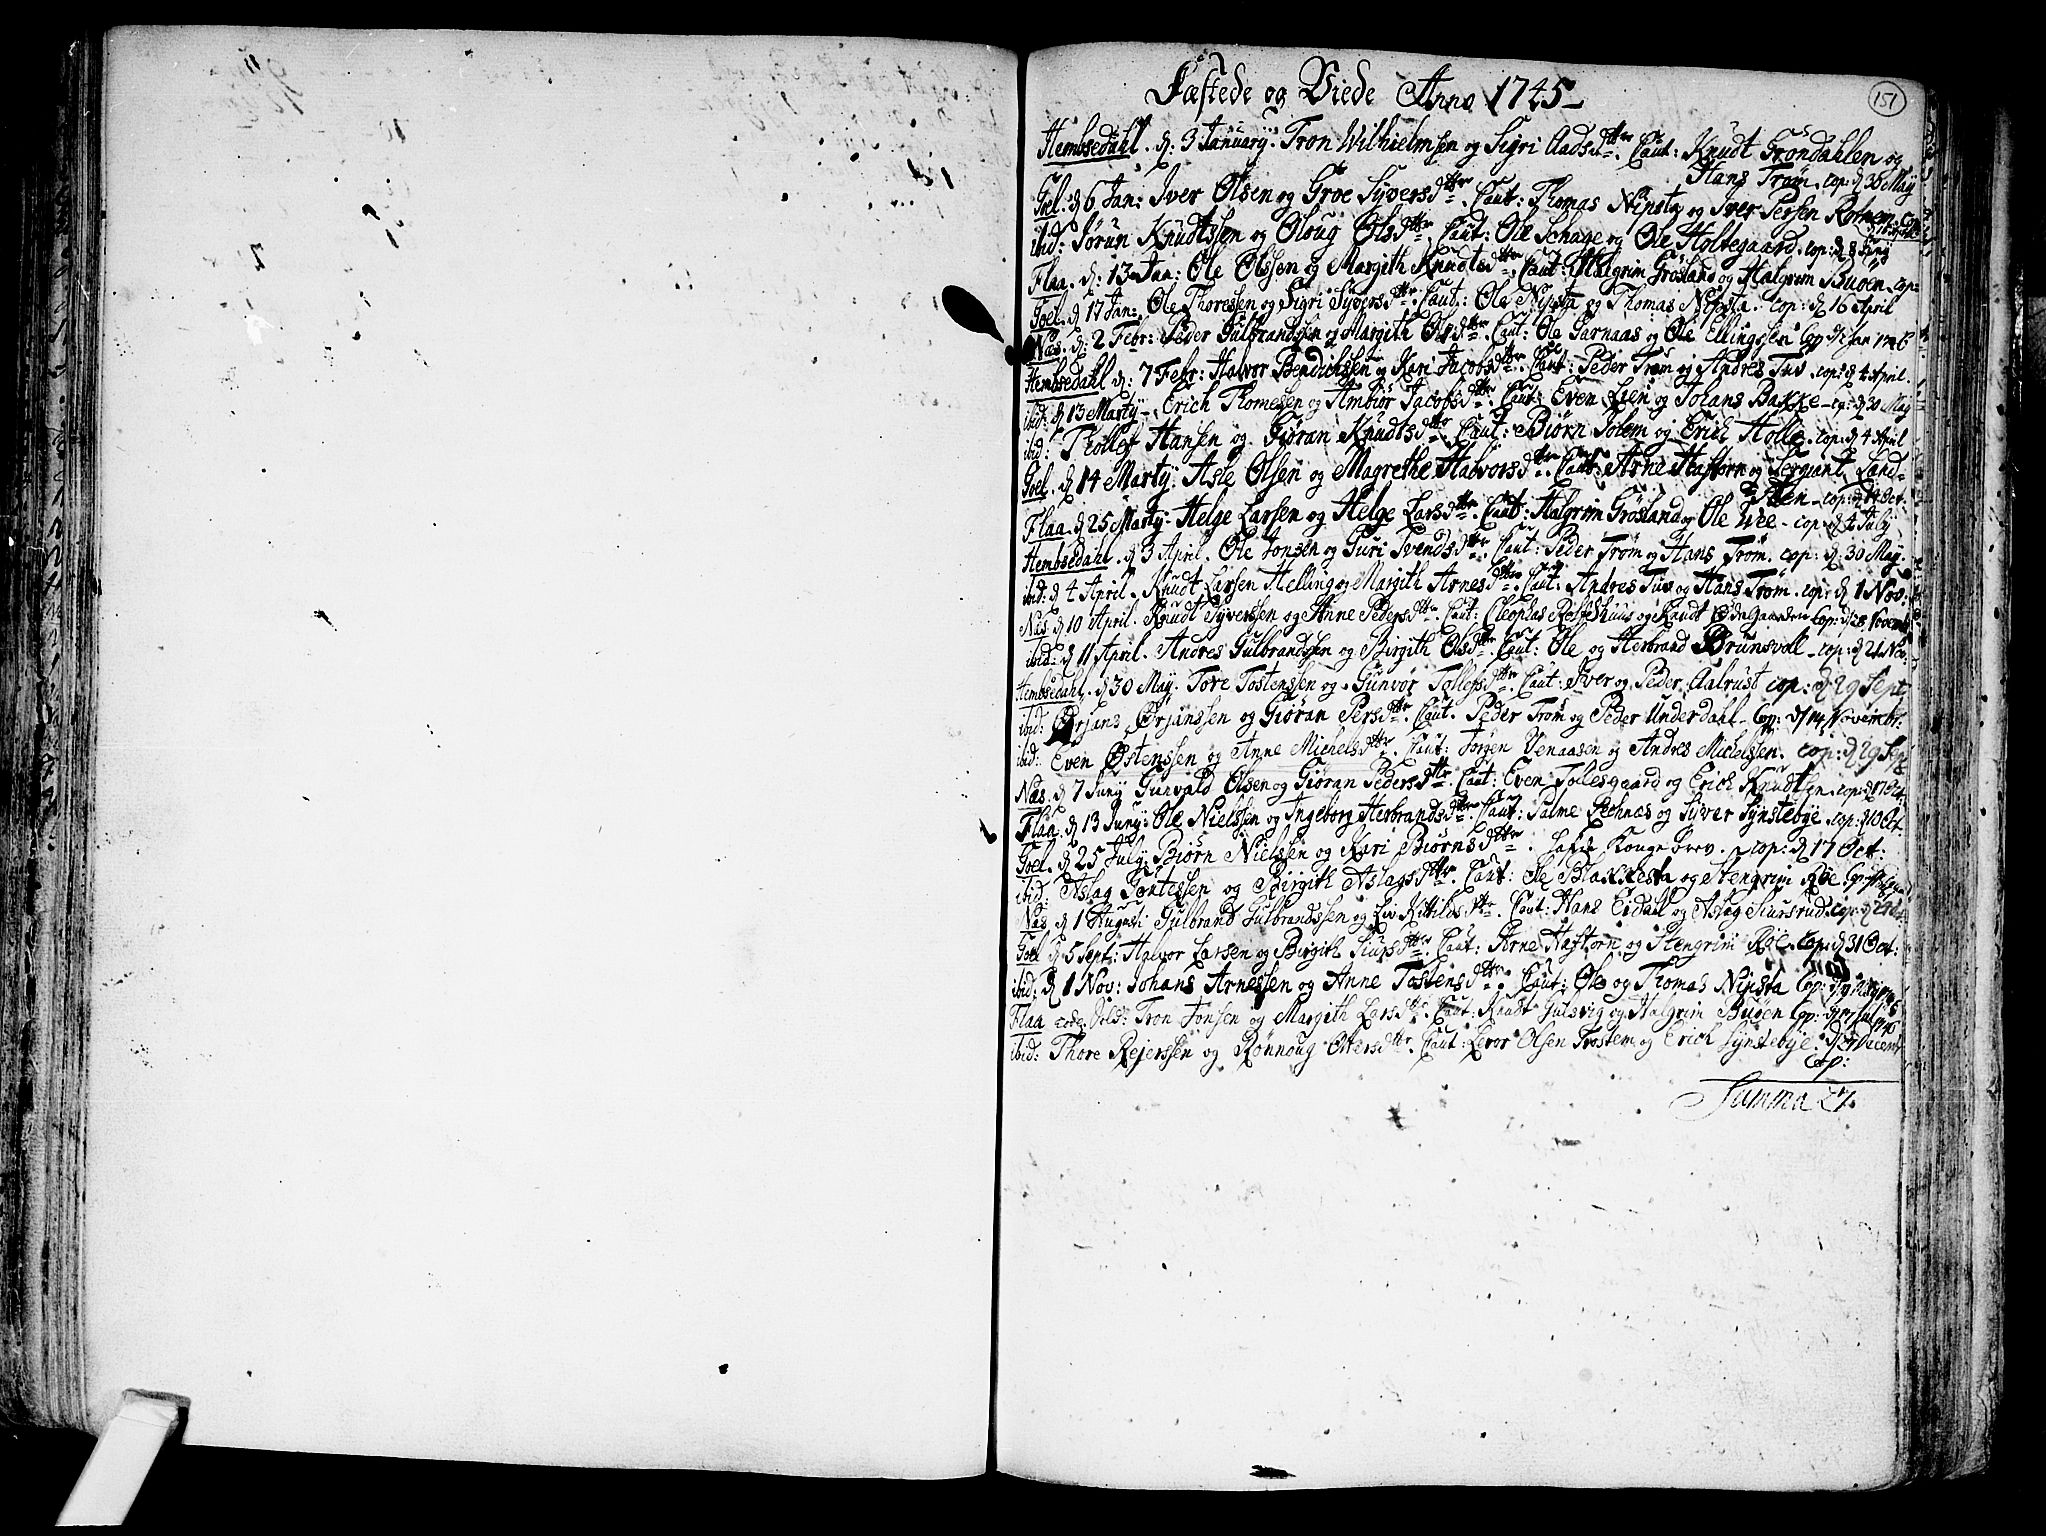 Fæstede og Viede Anno 1745
151
Hembsedahl. d: 3 January. Tron Wilhielmsen og Sigri Aadsdttr. Caut: Knudt Trøndahlen og
Hans Trøm. cop: d 30 May
Goel. d 6 Jan: Iver Olsen og Groe Syversdttr. Caut: Thomas Nipsta og Iver Persen Rotnem. Cop
ibid: Jørun Knudtssen og Oloug Olsdttr. Caut: Ole Schage og Ole Holtegaard. cop: d 8 Juny
Flaa. d: 13 Jan: Ole Olssen og Margith Knudtsdttr. Caut: Halgrim Grøsland og Halgrim Buøen. cop:
Goel. d 17 Jan: Ole Thoressen og Sigri Syversdttr. Caut: Ole Nipsta og Thomas Nipsta. cop: d 16 April
Næs. d: 2 Febr: Peder Gulbrandssen og Margith Olsdttr. Caut: Ole Garnaas og Ole Ellingssen Cop d 2 Jan 1746
Hembsedahl d: 7 Febr: Halvor Bendichssen og Kari Jacobsdttr. Caut: Peder Trøm og Andres Tuv. cop: d 4 April.
ibid: d 13 Marty. Erich Thomesen og Ambiør Jacobsdttr. Caut: Even Lien og Johans Bakke. cop: d 30 May
ibid: Thollef Hansen og Giøran Knudtsdttr. Caut: Biørn Solem og Erich Holle. cop: d 4 April
Goel. d 14 Marty. Asle Olsen og Magrethe Halvorsdttr. Caut: Arne Haftorn og Sergiant Land-
cop: d 14 Oct.
Flaa. d 25 Marty. Helge Larsen og Helge Larsdttr. Caut: Halgrim Grøsland og Ole Wee. cop: d 4 July
Hembsedahl. d 3 April. Ole Jonsen og Guri Svendsdttr. Caut: Peder Trøm og Hans Trøm. cop: d 30 May.
ibid: d 4 April. Knudt Larsen Helling og Margith Arnesdttr. Caut: Andres Tuv og Hans Trøm. cop: d 1 Nov.
Næs. d 10 April. Knudt Syverssen og Anne Pedersdttr. Caut: Cleophas Rolfshuus og Knudt Cop: d 28 Novemb
ibid: d 11 April. Andres Gulbrandssen og Birgith Olsdttr. Caut: Ole og Herbrand Brunsvoll. cop: d 21 Nov.
Hembsedahl. d 30 May. Tore Tostenssen og Gunvor Tollefsdttr. Caut: Iver og Peder Aalrust cop: d 29 Sept.
ibid: Ørjans Ørjanssen og Giøran Persdttr. Caut. Peder Trøm og Peder Underdahl. Cop: d 14 Novembr.
ibid: Even Østenssen og Anne Michelsdttr. Caut: Jørgen Venaasen og Andres Michelssen. cop: d 29 Sep
Næs. d 7 Juny Gunvald Olsen og Giøran Pedersdttr. Caut: Even Tollesgaard og Erich Knudtsen. cop: d 17 Oct.
Flaa. d 13 Juny: Ole Nielssen og Ingeborg Herbrandsdttr. Caut: Salme Leknæs og Syver Synstebye. cop: d 10 Oct.
Goel. d 25 July: Biørn Nielssen og Kari Biørnsdttr. Konge brev. cop: d 17 Oct:
ibid: Aslag Gontessen og Birgith Aslagsdttr. Caut: Ole Blakkesta og Stengrim Røe.
Næs d 1 Augusti Gulbrand Gulbrandssen og Liv Kittilsdttr. Caut: Hans Eidahl og Aslag Siursrud. cop:
Goel d 5 Sept: Halvor Larsen og Birgith Siursdttr. Caut: Arne Haftorn og Stengrim Røe. cop: d 31 Oct:
ibid: d 1 Nov: Johans Arnessen og Anne Tostensdttr. Caut: Ole og Thomas Nipsta Cop:
Flaa eod: Tron Jonsen og Margith Larsdttr. Caut: Knudt Gulsvig og Halgrim Buøen Cop:
ibid: Thore Rejerssen og Rønnoug Ottersdttr. Caut: Levor Olsen Trostem og Erich Synstebye. d 27 Decemb
cop:
Summa 27.